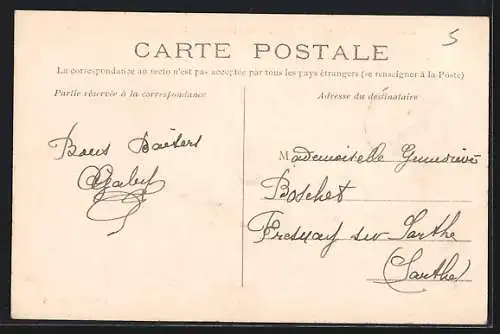 5
CARTE POSTALE
La correspondance au recto n'est pas acceptée par tous les pays étrangers (se renseigner à la Poste)
Partie réservée à la correspondance
Adresse du destinataire
Bons Baisers
Mademoiselle Geneviève
Boschet
Fresnay sur Sarthe
(Sarthe)